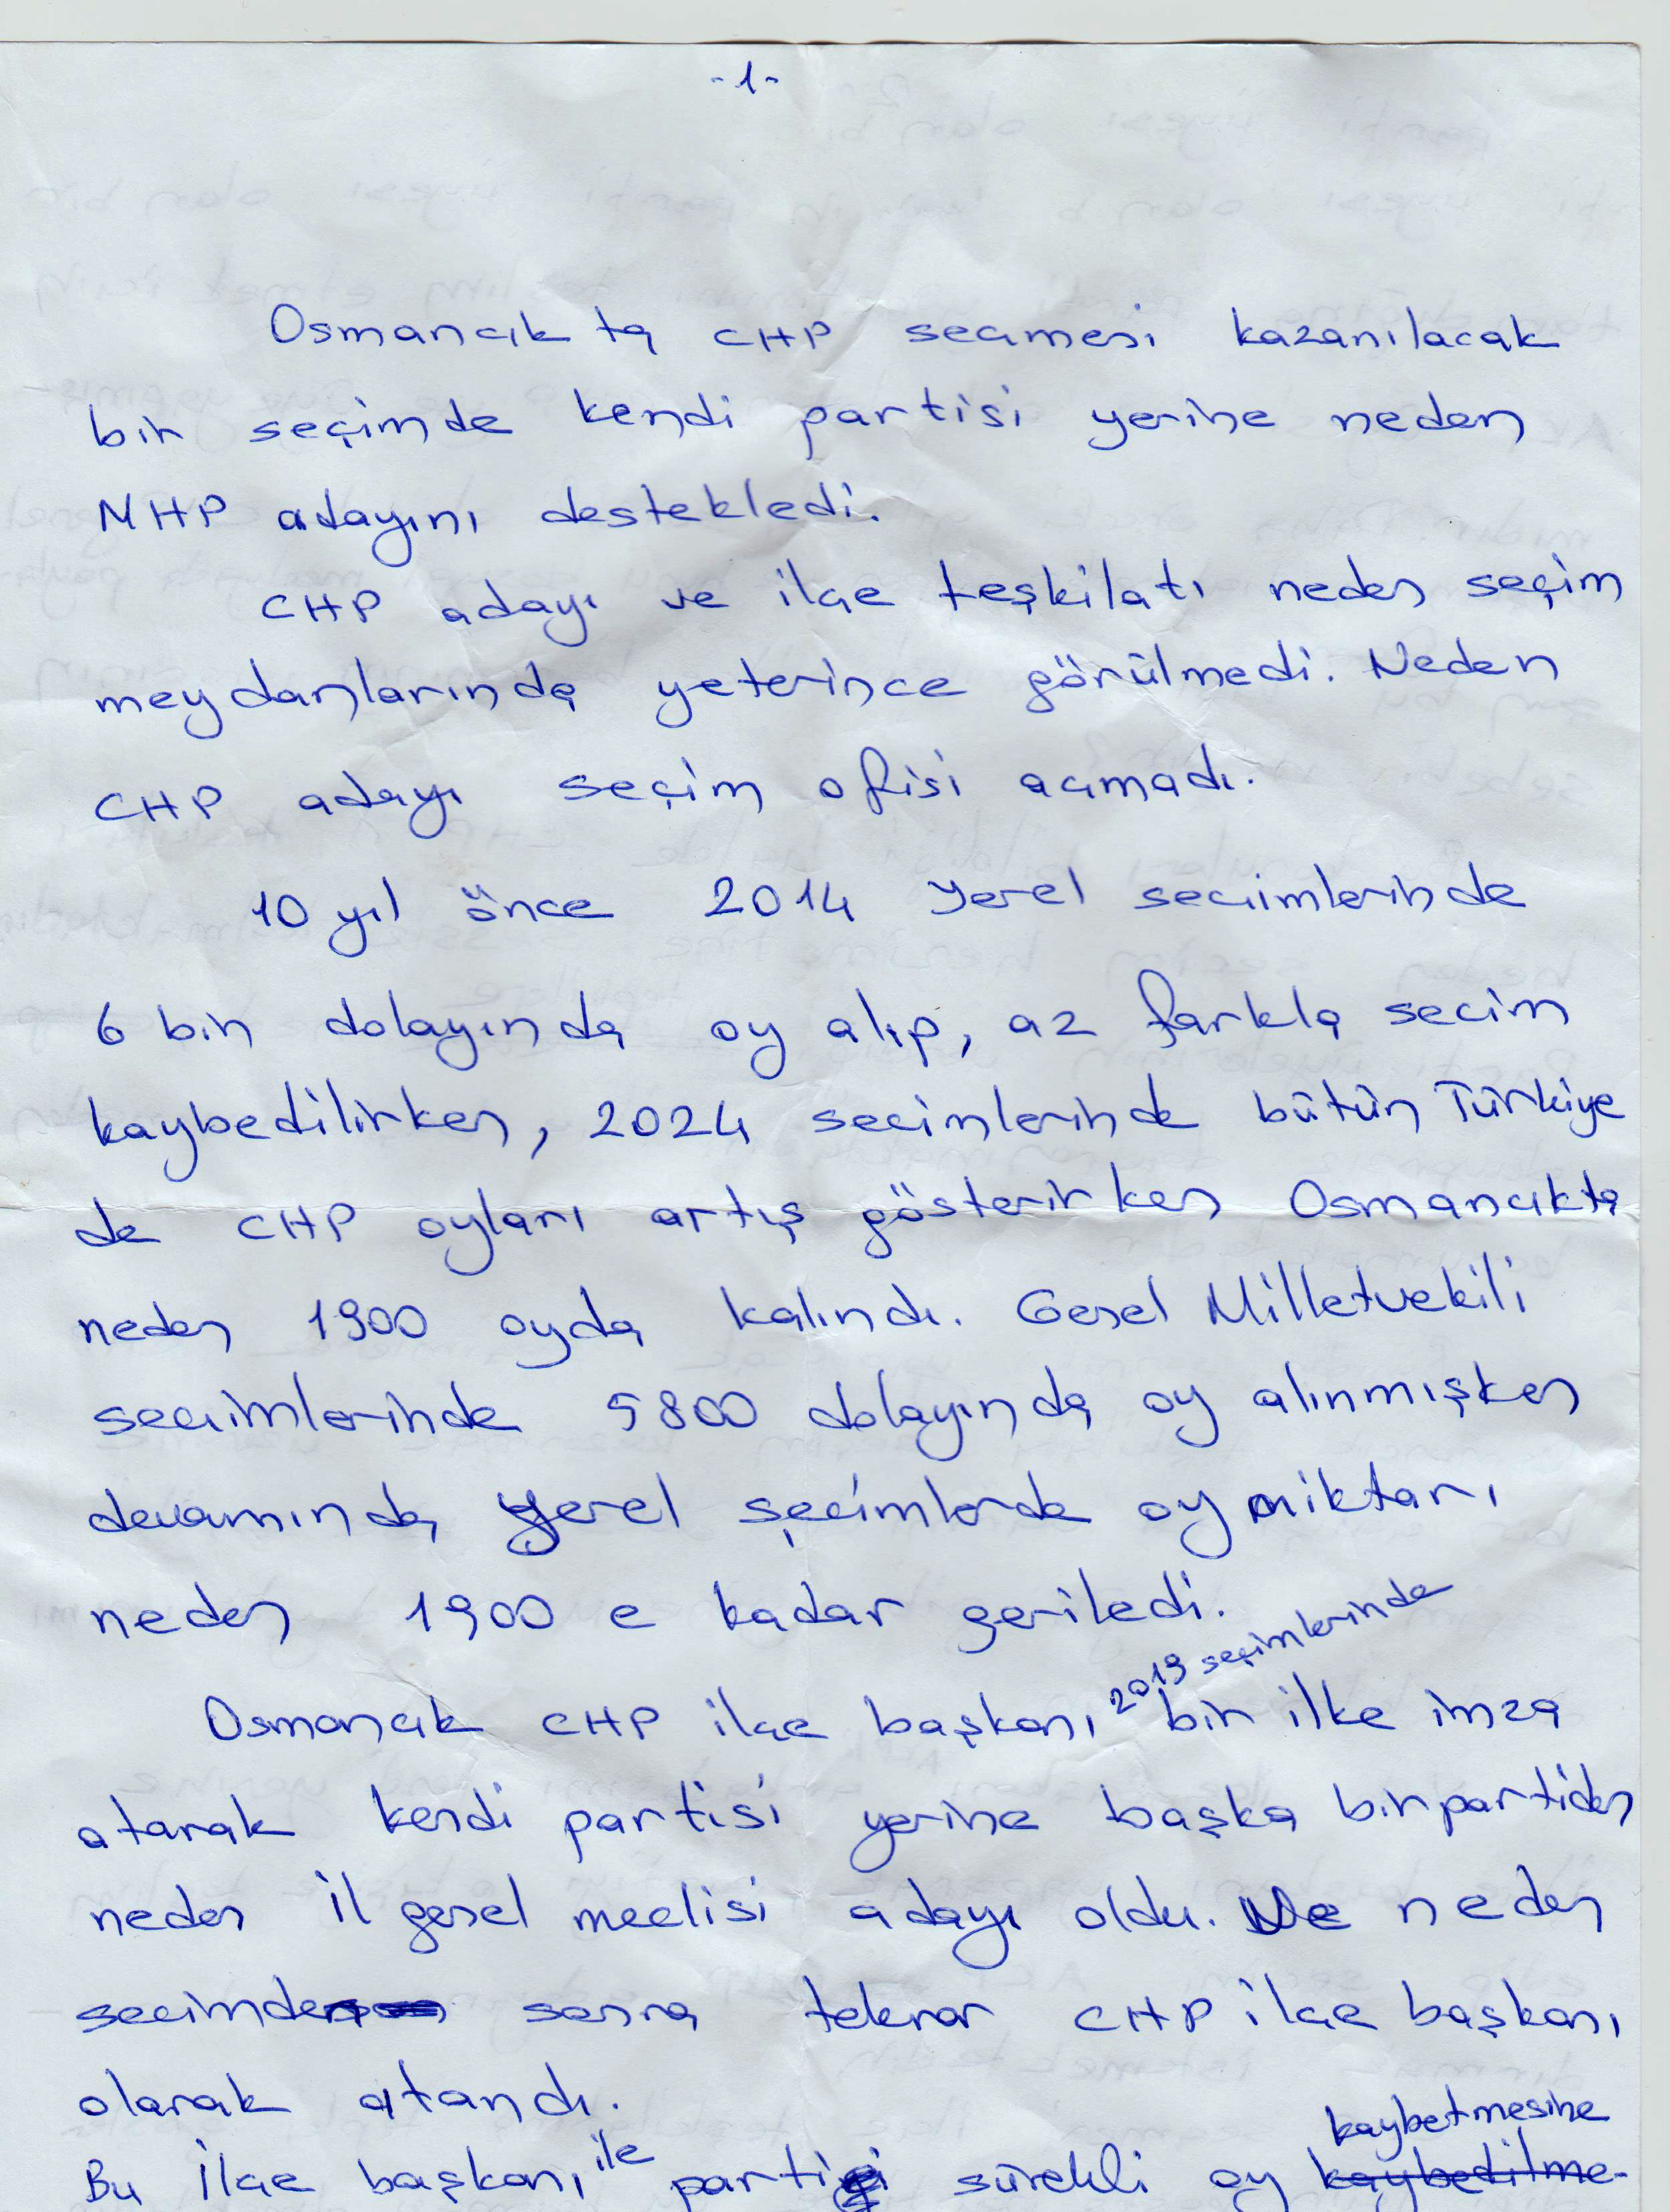 -1-
Osmancık ta CHP seçmeni kazanılacak
bir seçimde kendi partisi yerine neden
MHP adayını destekledi.
CHP adayı ve ilçe teşkilatı neden seçim
meydanlarında yeterince görülmedi. Neden
CHP adayı seçim ofisi açmadı.
10 yıl önce 2014 yerel seçimlerinde
6 bin dolayında oy alıp, az farkla secim
kaybedilirken, 2024 secimlerinde bütün Türkiye
de CHP oyları artış gösterirken Osmancıkta
neden 1900 oyda kalındı. Genel Milletvekili
seçimlerinde 5800 dolayında oy alınmışken
devamında yerel seçimlerde oy miktarı
neden 1900 e kadar geriledi.
Osmancık CHP ilçe başkanı 2019 seçimlerinde bir ilke imza
atarak kendi partisi yerine başka bir partiden
neden il genel meclisi adayı oldu. Ve neden
secimden sonra tekrar CHP ilçe başkanı
olarak atandı.
Bu ilçe başkanı ile parti sürekli oy kaybetmesine kaybedilme-